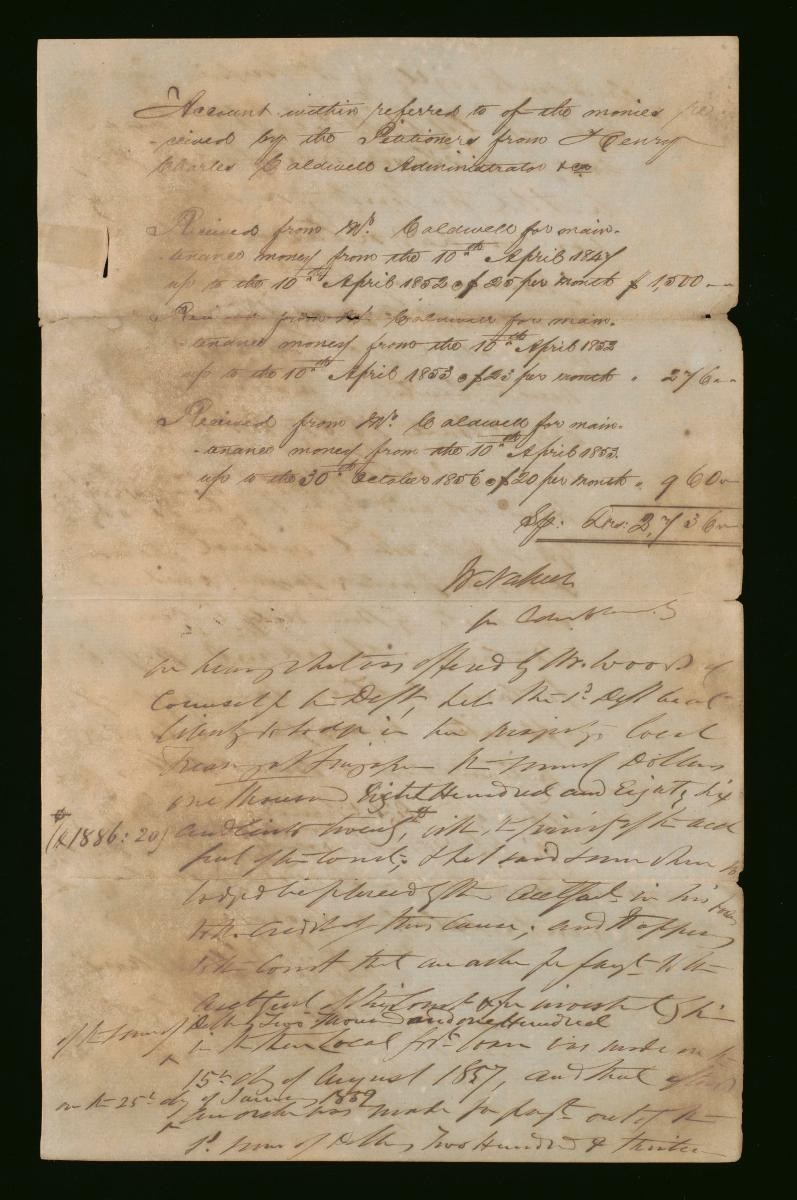 Account within referred to of the monies re
-ceived by the Petitioners from Henry
Charles Caldwell Administrator &ca
Received from Mr. Caldwell for main-
-tenance money from the 10th April 1847
up to the 10th April 1852 of 25 per month $ 1,500 --
Received from Mr. Caldwell for main-
-tenance money from the 10th April 1852
up to the 10th April 1853 of 23 per month " 276 --
Received from Mr. Caldwell for main-
-tenance money from the 10th April 1853
up to the 30th October 1856 of 20 per month " 960 --
Sp: Drs: 2,736 --
on hearing what was offered by Mr. Woods of
Counsel for the Deft, let the sd. Deft be at
liberty to lodge in her majestys local
Treasy at Singapore the sum of Dollars
one thousand Eight Hundred and Eighty six
($1886:20) and Cents twenty with the privity of the acct
genl of the Court; & that said sum when so
lodged be placed by the Acct genl in his books
to the credit of this cause; and it appearg
to the Court that an order for paymt to the
acct genl of this Court & for investmt by him
of the sum of Dollars Two Thousand and one Hundred
in the then Local govt Loan was made on the
15th day of August 1857, and that afterwds
on the 25th day of January 1859
an order was made for paymt out of the
sd. sum of Dollars Two Hundred & thirteen